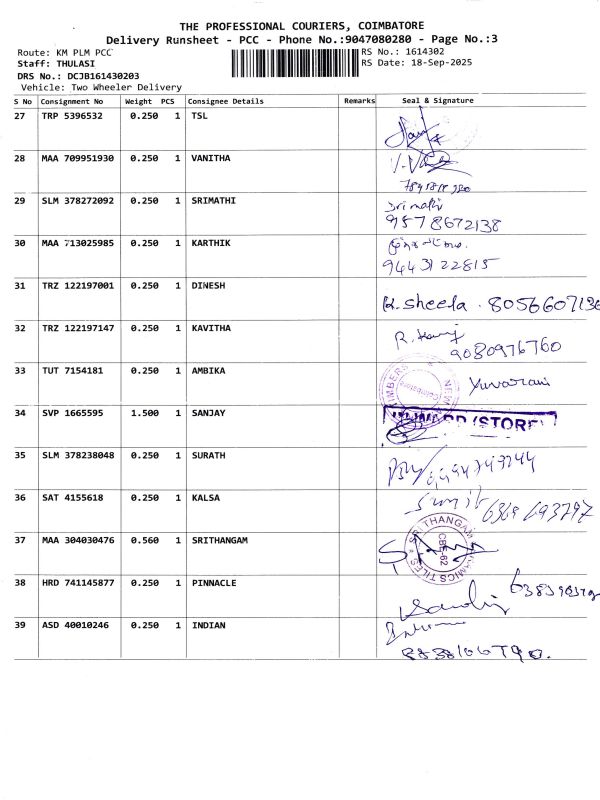 THE PROFESSIONAL COURIERS, COIMBATORE
Delivery Runsheet - PCC - Phone No.:9047080280 - Page No.:3
Route: KM PLM PCC RS No.: 1614302
Staff: THULASI RS Date: 18-Sep-2025
DRS No.: DCJB161430203
Vehicle: Two Wheeler Delivery
S No Consignment No Weight PCS Consignee Details Remarks Seal & Signature
27 TRP 5396532 0.250 1 TSL
28 MAA 709951930 0.250 1 VANITHA
29 SLM 378272092 0.250 1 SRIMATHI Srimathi
9578672138
30 MAA 713025985 0.250 1 KARTHIK
9443122815
31 TRZ 122197001 0.250 1 DINESH K. Sheela . 8056607136
32 TRZ 122197147 0.250 1 KAVITHA
9080976760
33 TUT 7154181 0.250 1 AMBIKA Yuvarani
34 SVP 1665595 1.500 1 SANJAY (STORE)
35 SLM 378238048 0.250 1 SURATH
36 SAT 4155618 0.250 1 KALSA
37 MAA 304030476 0.560 1 SRITHANGAM SRITHANGAM CERAMICS TILES CBE-62
38 HRD 741145877 0.250 1 PINNACLE
39 ASD 40010246 0.250 1 INDIAN